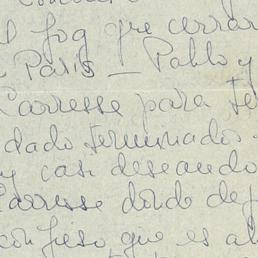 que cerrar
Paris — Pablo y
Carresse para te
dado terminados
y casi deseando
Carresse donde de
confieso que es al